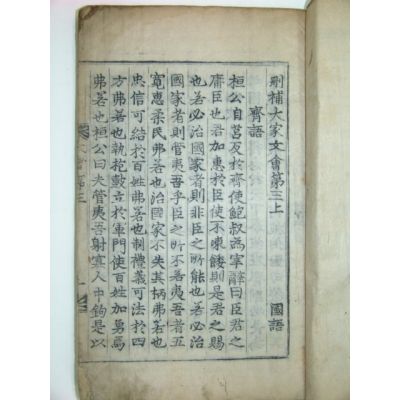 刪補大家文會第三上
國語
齊語
桓公自莒反於齊使鮑叔為宰辭曰臣君之
庸臣也君加惠於臣使不凍餒則是君之賜
也若必治國家者則非臣之所能也若必治
國家者則管夷吾乎臣之所不若夷吾者五
寬惠柔民弗若也治國家不失其柄弗若也
忠信可結於百姓弗若也制禮義可法於四
方弗若也執枹鼓立於軍門使百姓加勇焉
弗若也桓公曰夫管夷吾射寡人中鉤是以
文會第三